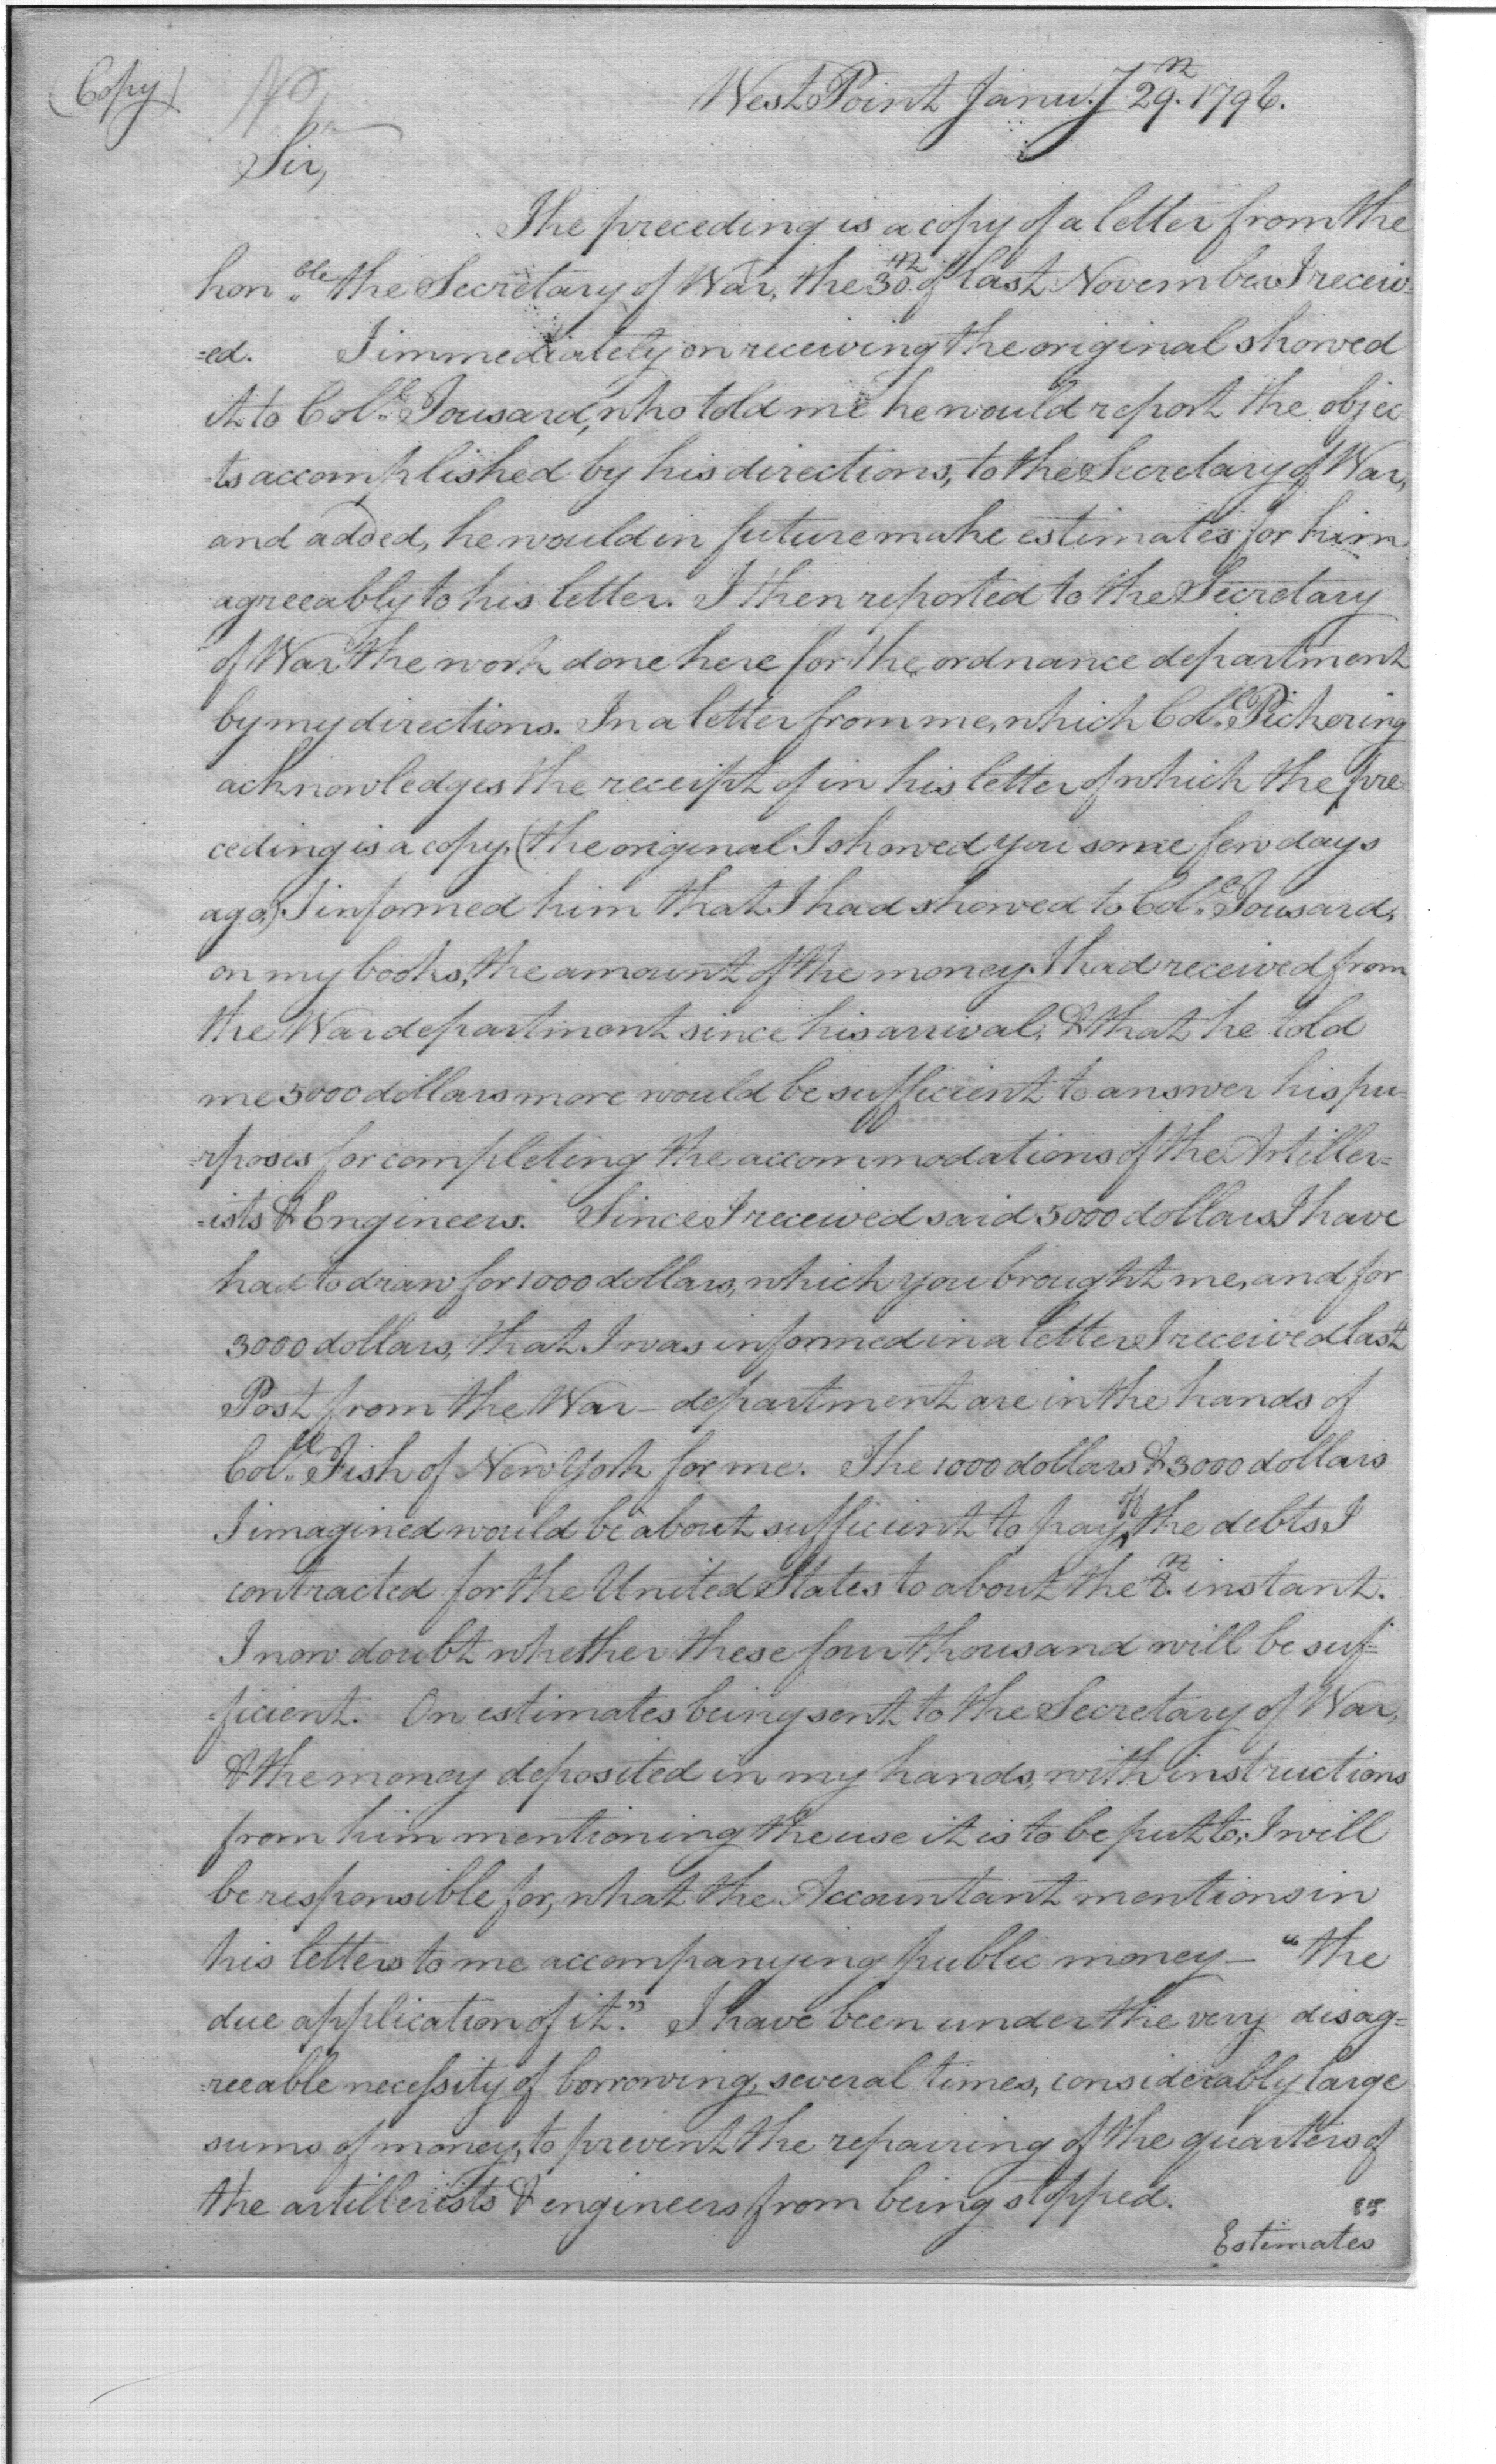 (Copy) No
West Point Janu.y 29.th 1796.
Sir,
The preceding is a copy of a letter from the
hon.ble the Secretary of War, the 30.th of last November I receiv=
=ed. I immediately on receiving the original showed
it to Col.l Tousard, who told me he would report the objec
-ts accomplished by his directions, to the Secretary of War,
and added, he would in future make estimates for him
agreeably to his letter. I then reported to the Secretary
of War the work done here for the ordnance department
by my directions. In a letter from me, which Col.l Pickering
acknowledges the receipt of in his letter of which the pre-
ceding is a copy, (the original I showed you some few days
ago,) I informed him that I had showed to Col.l Tousard,
on my books, the amount of the money I had received from
the War department since his arrival, & that he told
me 5000 dollars more would be sufficient to answer his pu-
-rposes for completing the accommodations of the Artiller=
=ists & Engineers. Since I received said 5000 dollars I have
had to draw for 1000 dollars, which you brought me, and for
3000 dollars, that I was informed in a letter I received last
Post from the War-department are in the hands of
Col.ll Fish of New York for me. The 1000 dollars & 3000 dollars
I imagined would be about sufficient to pay off the debts I
contracted for the United States to about the 8.th instant.
I now doubt whether these four thousand will be suf=
=ficient. On estimates being sent to the Secretary of War,
& the money deposited in my hands, with instructions
from him mentioning the use it is to be put to, I will
be responsible for, what the Accountant mentions in
his letters to me accompanying public money — "the
due application of it." I have been under the very disag=
=reeable necessity of borrowing, several times, considerably large
sums of money, to prevent the repairing of the quarters of
the artillerists & engineers from being stopped.
Estimates